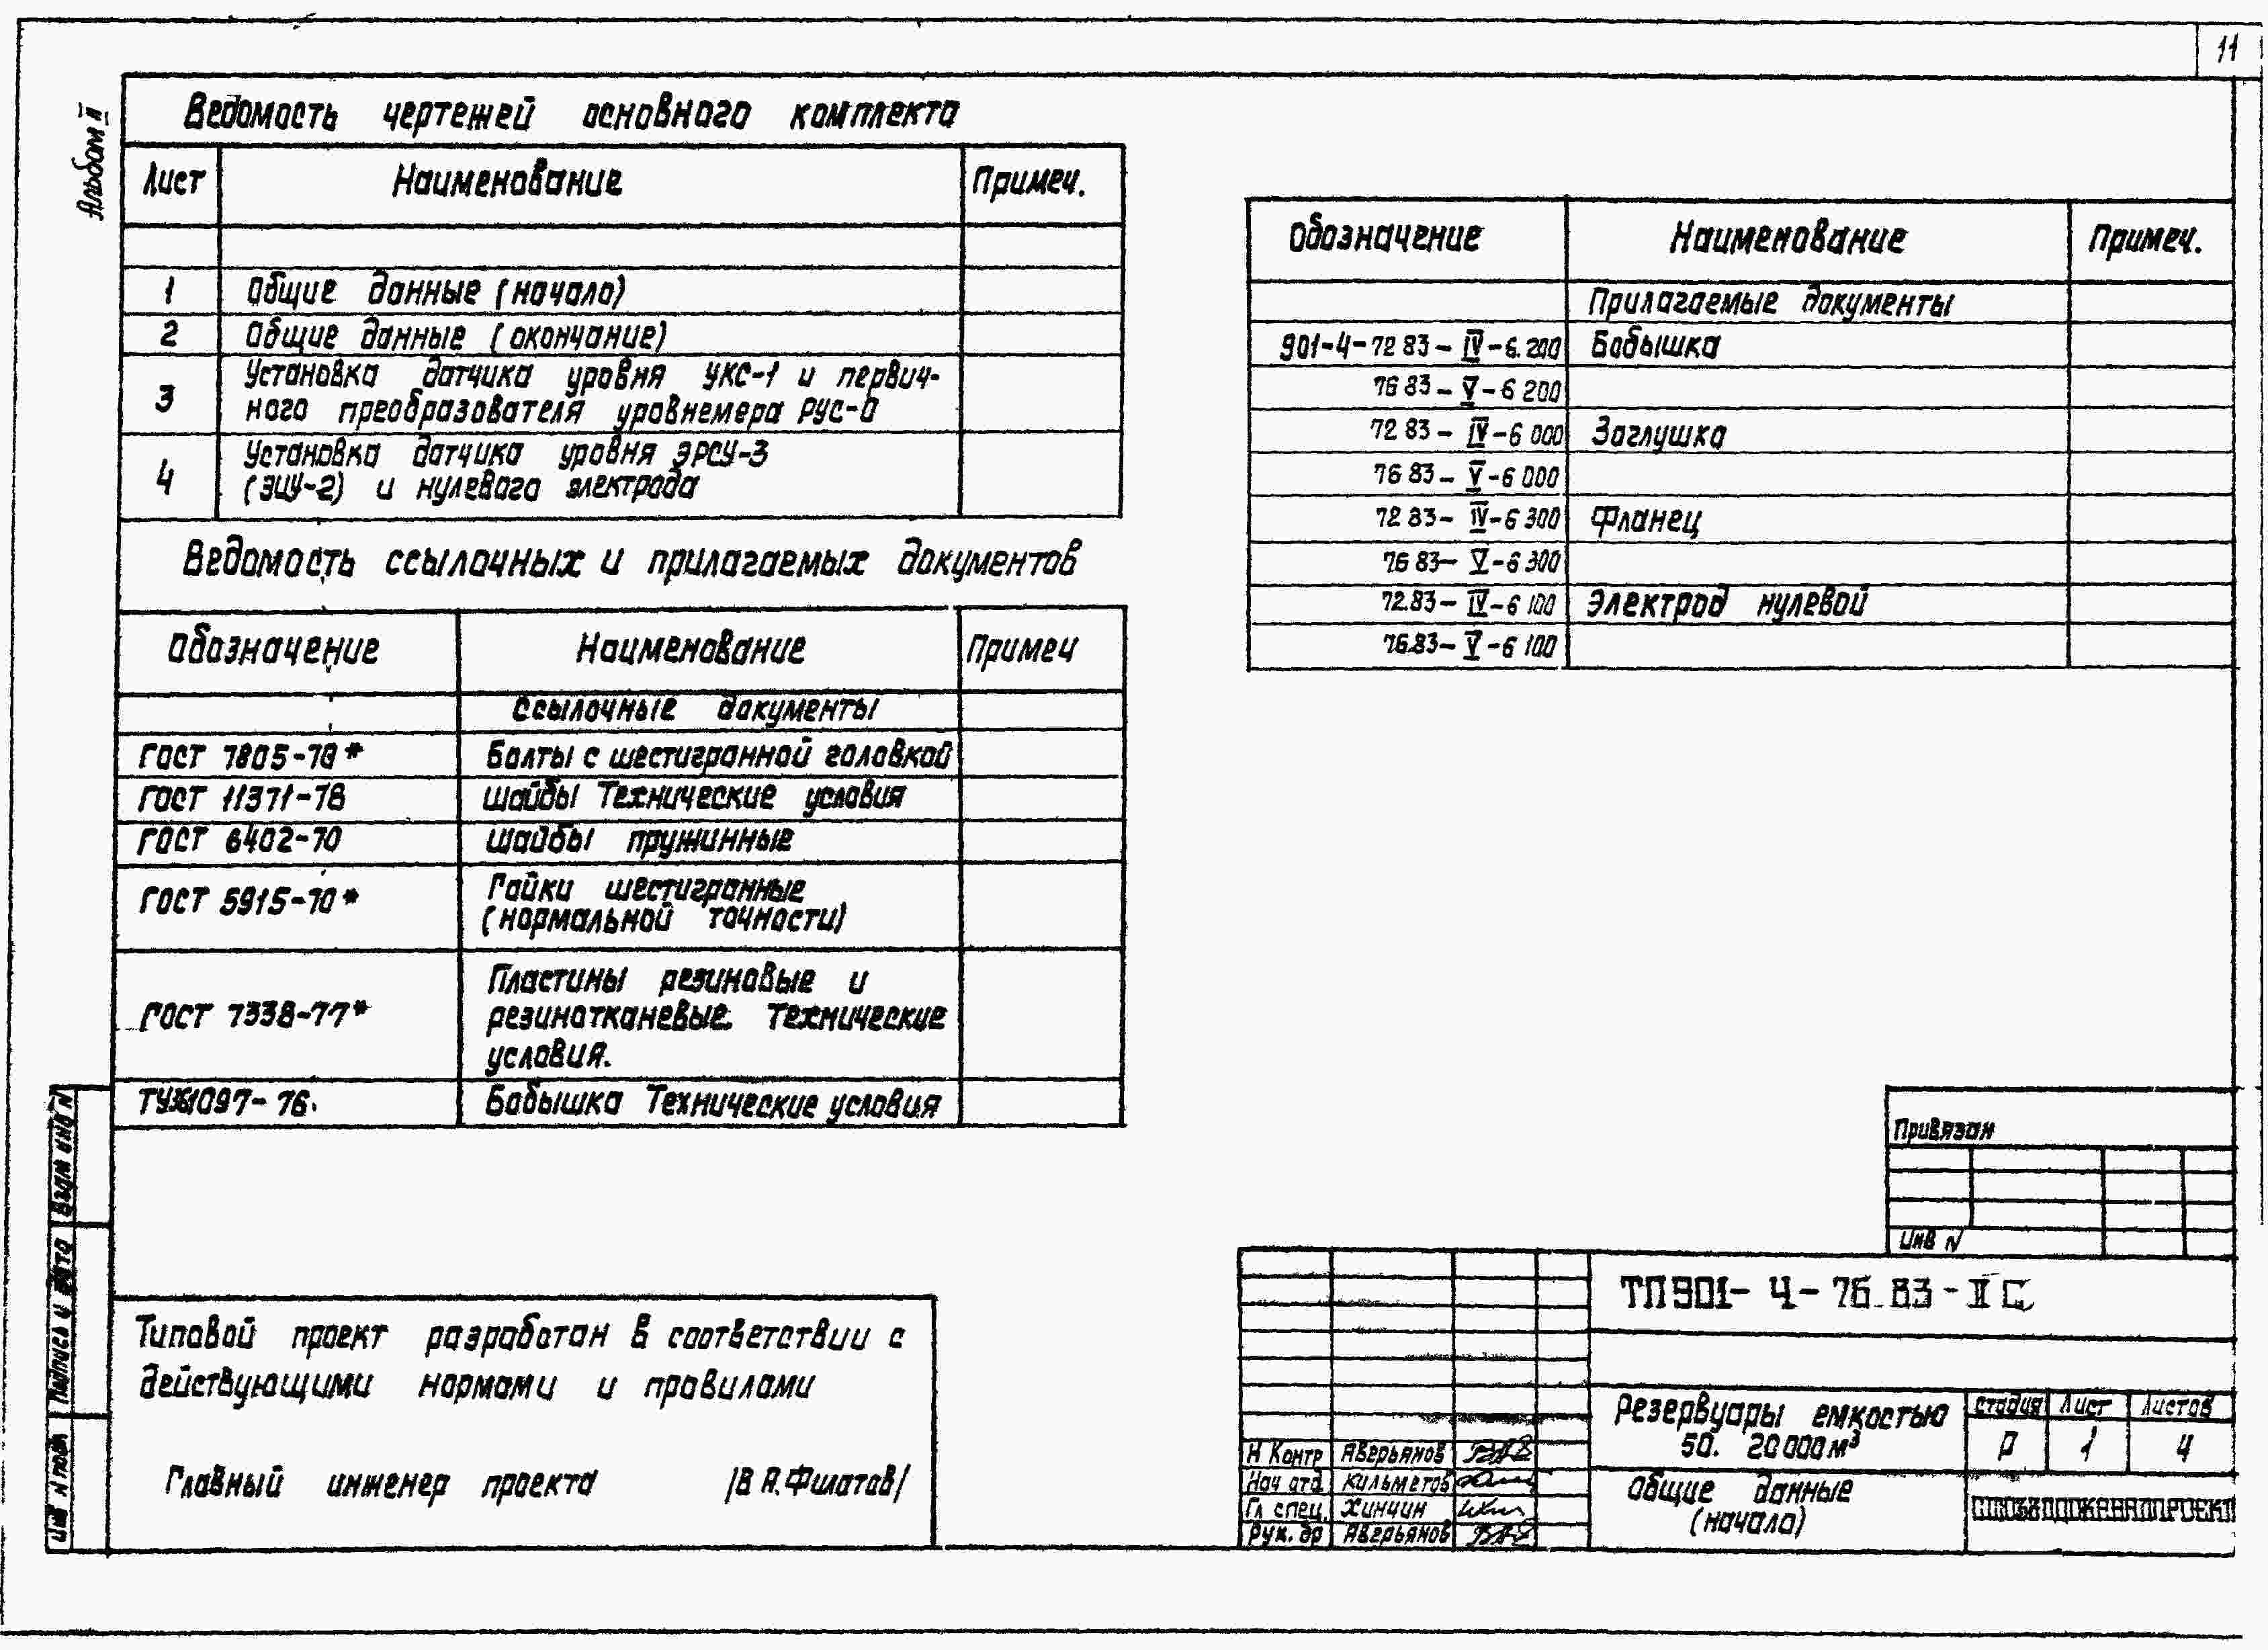 11
Альбом II
Ведомость чертежей основного комплекта
Лист Наименование Примеч.
1 Общие данные (начало)
2 Общие данные (окончание)
3 Установка датчика уровня УКС-1 и первич-
ного преобразователя уровнемера РУС-0
4 Установка датчика уровня ЭРСУ-3
(ЭИУ-2) и нулевого электрода
Ведомость ссылочных и прилагаемых документов
Обозначение Наименование Примеч
Ссылочные документы
ГОСТ 7805-70* Болты с шестигранной головкой
ГОСТ 11371-78 Шайбы Технические условия
ГОСТ 6402-70 Шайбы пружинные
ГОСТ 5915-70* Гайки шестигранные
(нормальной точности)
ГОСТ 7338-77* Пластины резиновые и
резинотканевые. Технические
условия.
1097-76. Бобышка Технические условия
Обозначение Наименование Примеч.
Прилагаемые документы
901-4-72 83-IV-6.200 Бобышка
76 83-V-6 200
72 83-IV-6 000 Заглушка
76 83-V-6 000
72 83-IV-6 300 Фланец
76 83-V-6 300
72.83-IV-6 100 Электрод нулевой
76.83-V-6 100
Типовой проект разработан в соответствии с
действующими нормами и правилами
Главный инженер проекта /В А.Филатов/
Взам инв N
Подпись и дата
Инв N подл
Привязан
Инв N
ТП 901-4-76.83-II С
Резервуары емкостью
50. 20 000 м³
стадия Лист Листов
Р 1 4
Общие данные
(начало)
Н Контр Аверьянов
Нач отд. Кильметов
Гл спец. Хинчин
Рук. бр Аверьянов